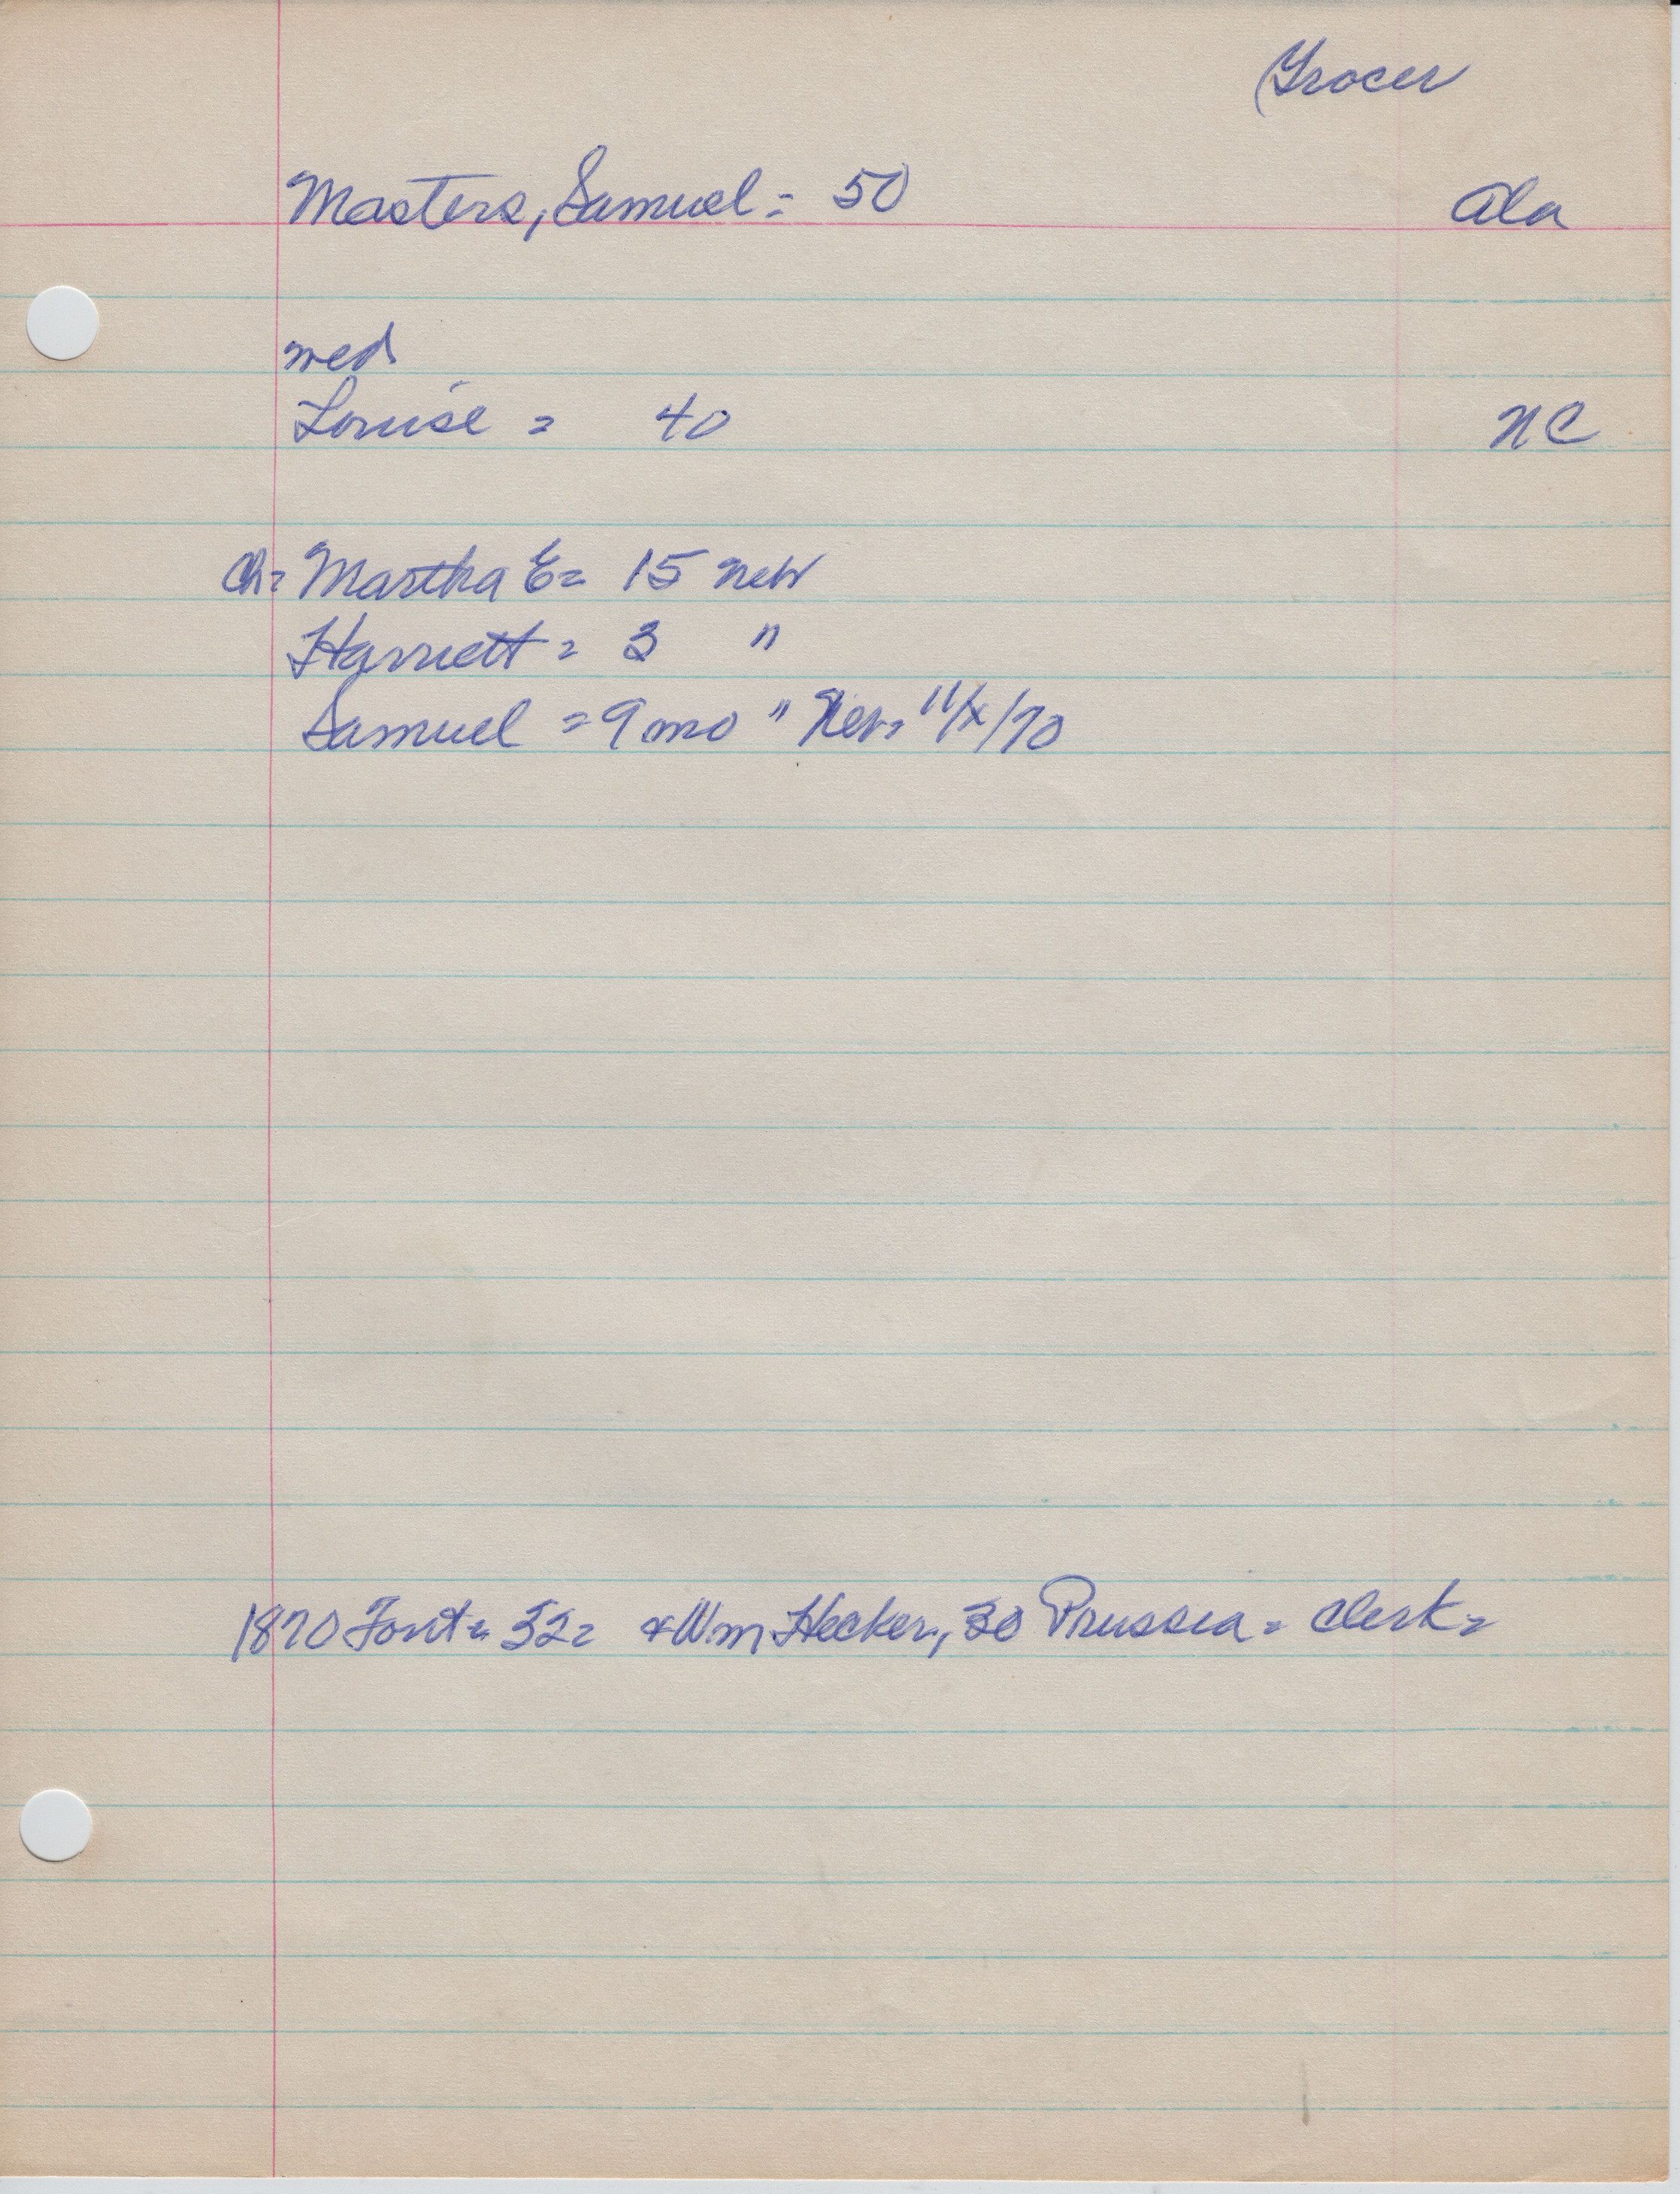 Grocer
Masters, Samuel = 50 Ala
wed
Louise = 40 NC
Ch = Martha E = 15 neb
Harriett = 3 "
Samuel = 9 mo " 11/x/70
1870 = 32 = & Wm Hecker, 30 Prussia = Clerk =